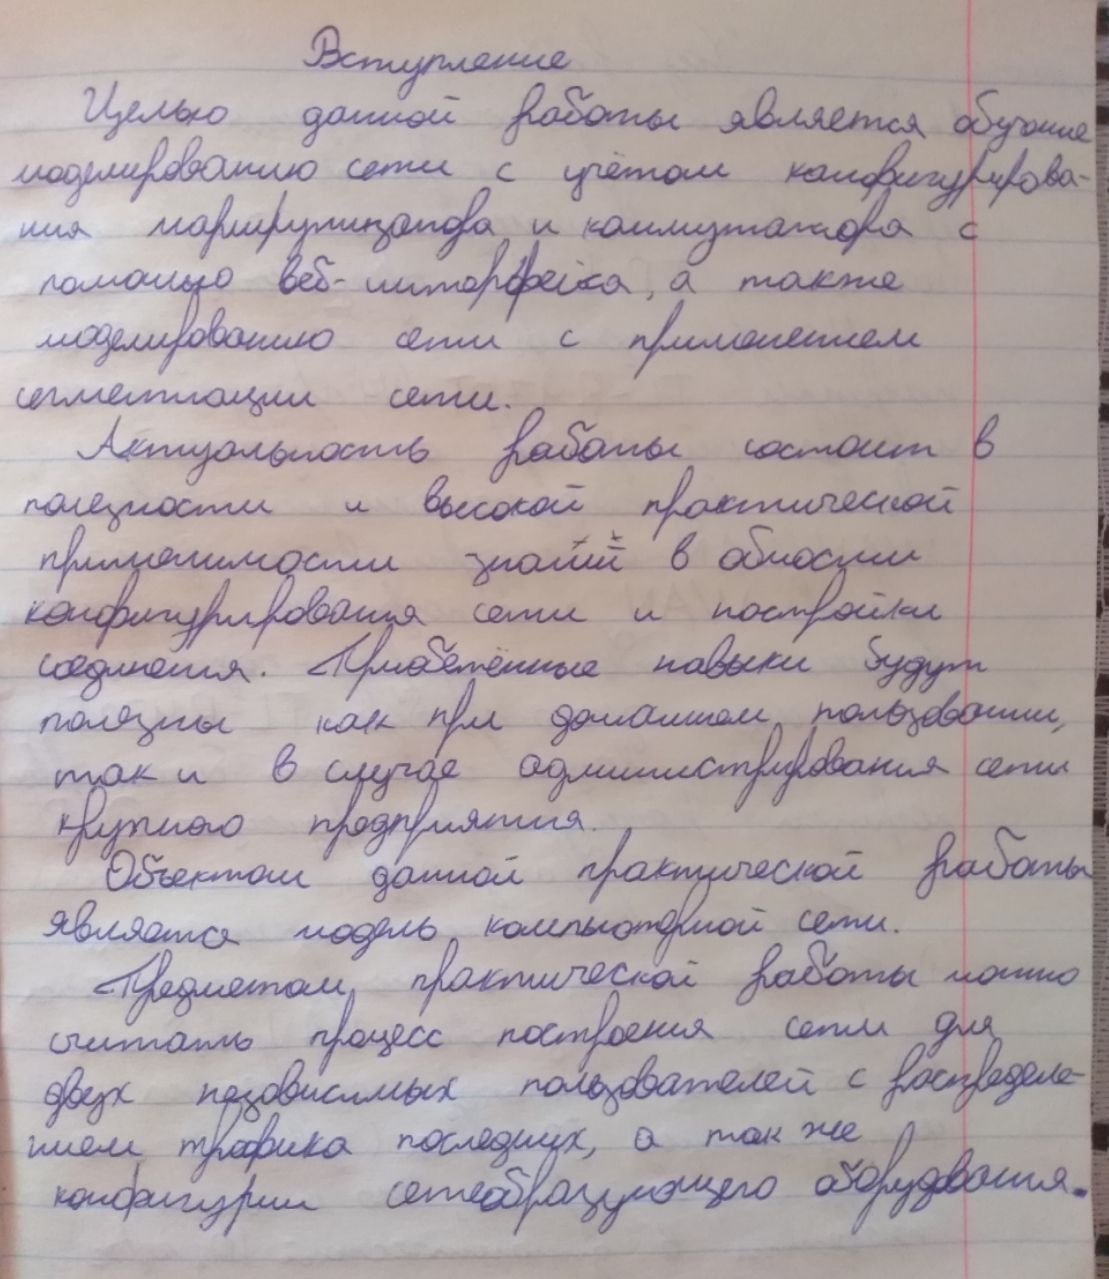 Вступление
Целью данной работы является обучение
моделированию сети с учётом конфигурирова-
ния маршрутизатора и коммутатора с
помощью веб-интерфейса, а также
моделированию сети с применением
сегментации сети.
Актуальность работы состоит в
полезности и высокой практической
применимости знаний в области
конфигурирования сети и постройки
соединения. Приобретённые навыки будут
полезны как при домашнем пользовании,
так и в случае администрирования сети
крупного предприятия.
Объектом данной практической работы
является модель компьютерной сети.
Предметом практической работы можно
считать процесс построения сети для
двух независимых пользователей с распределе-
нием трафика последних, а также
конфигурии сетеобразующего оборудования.